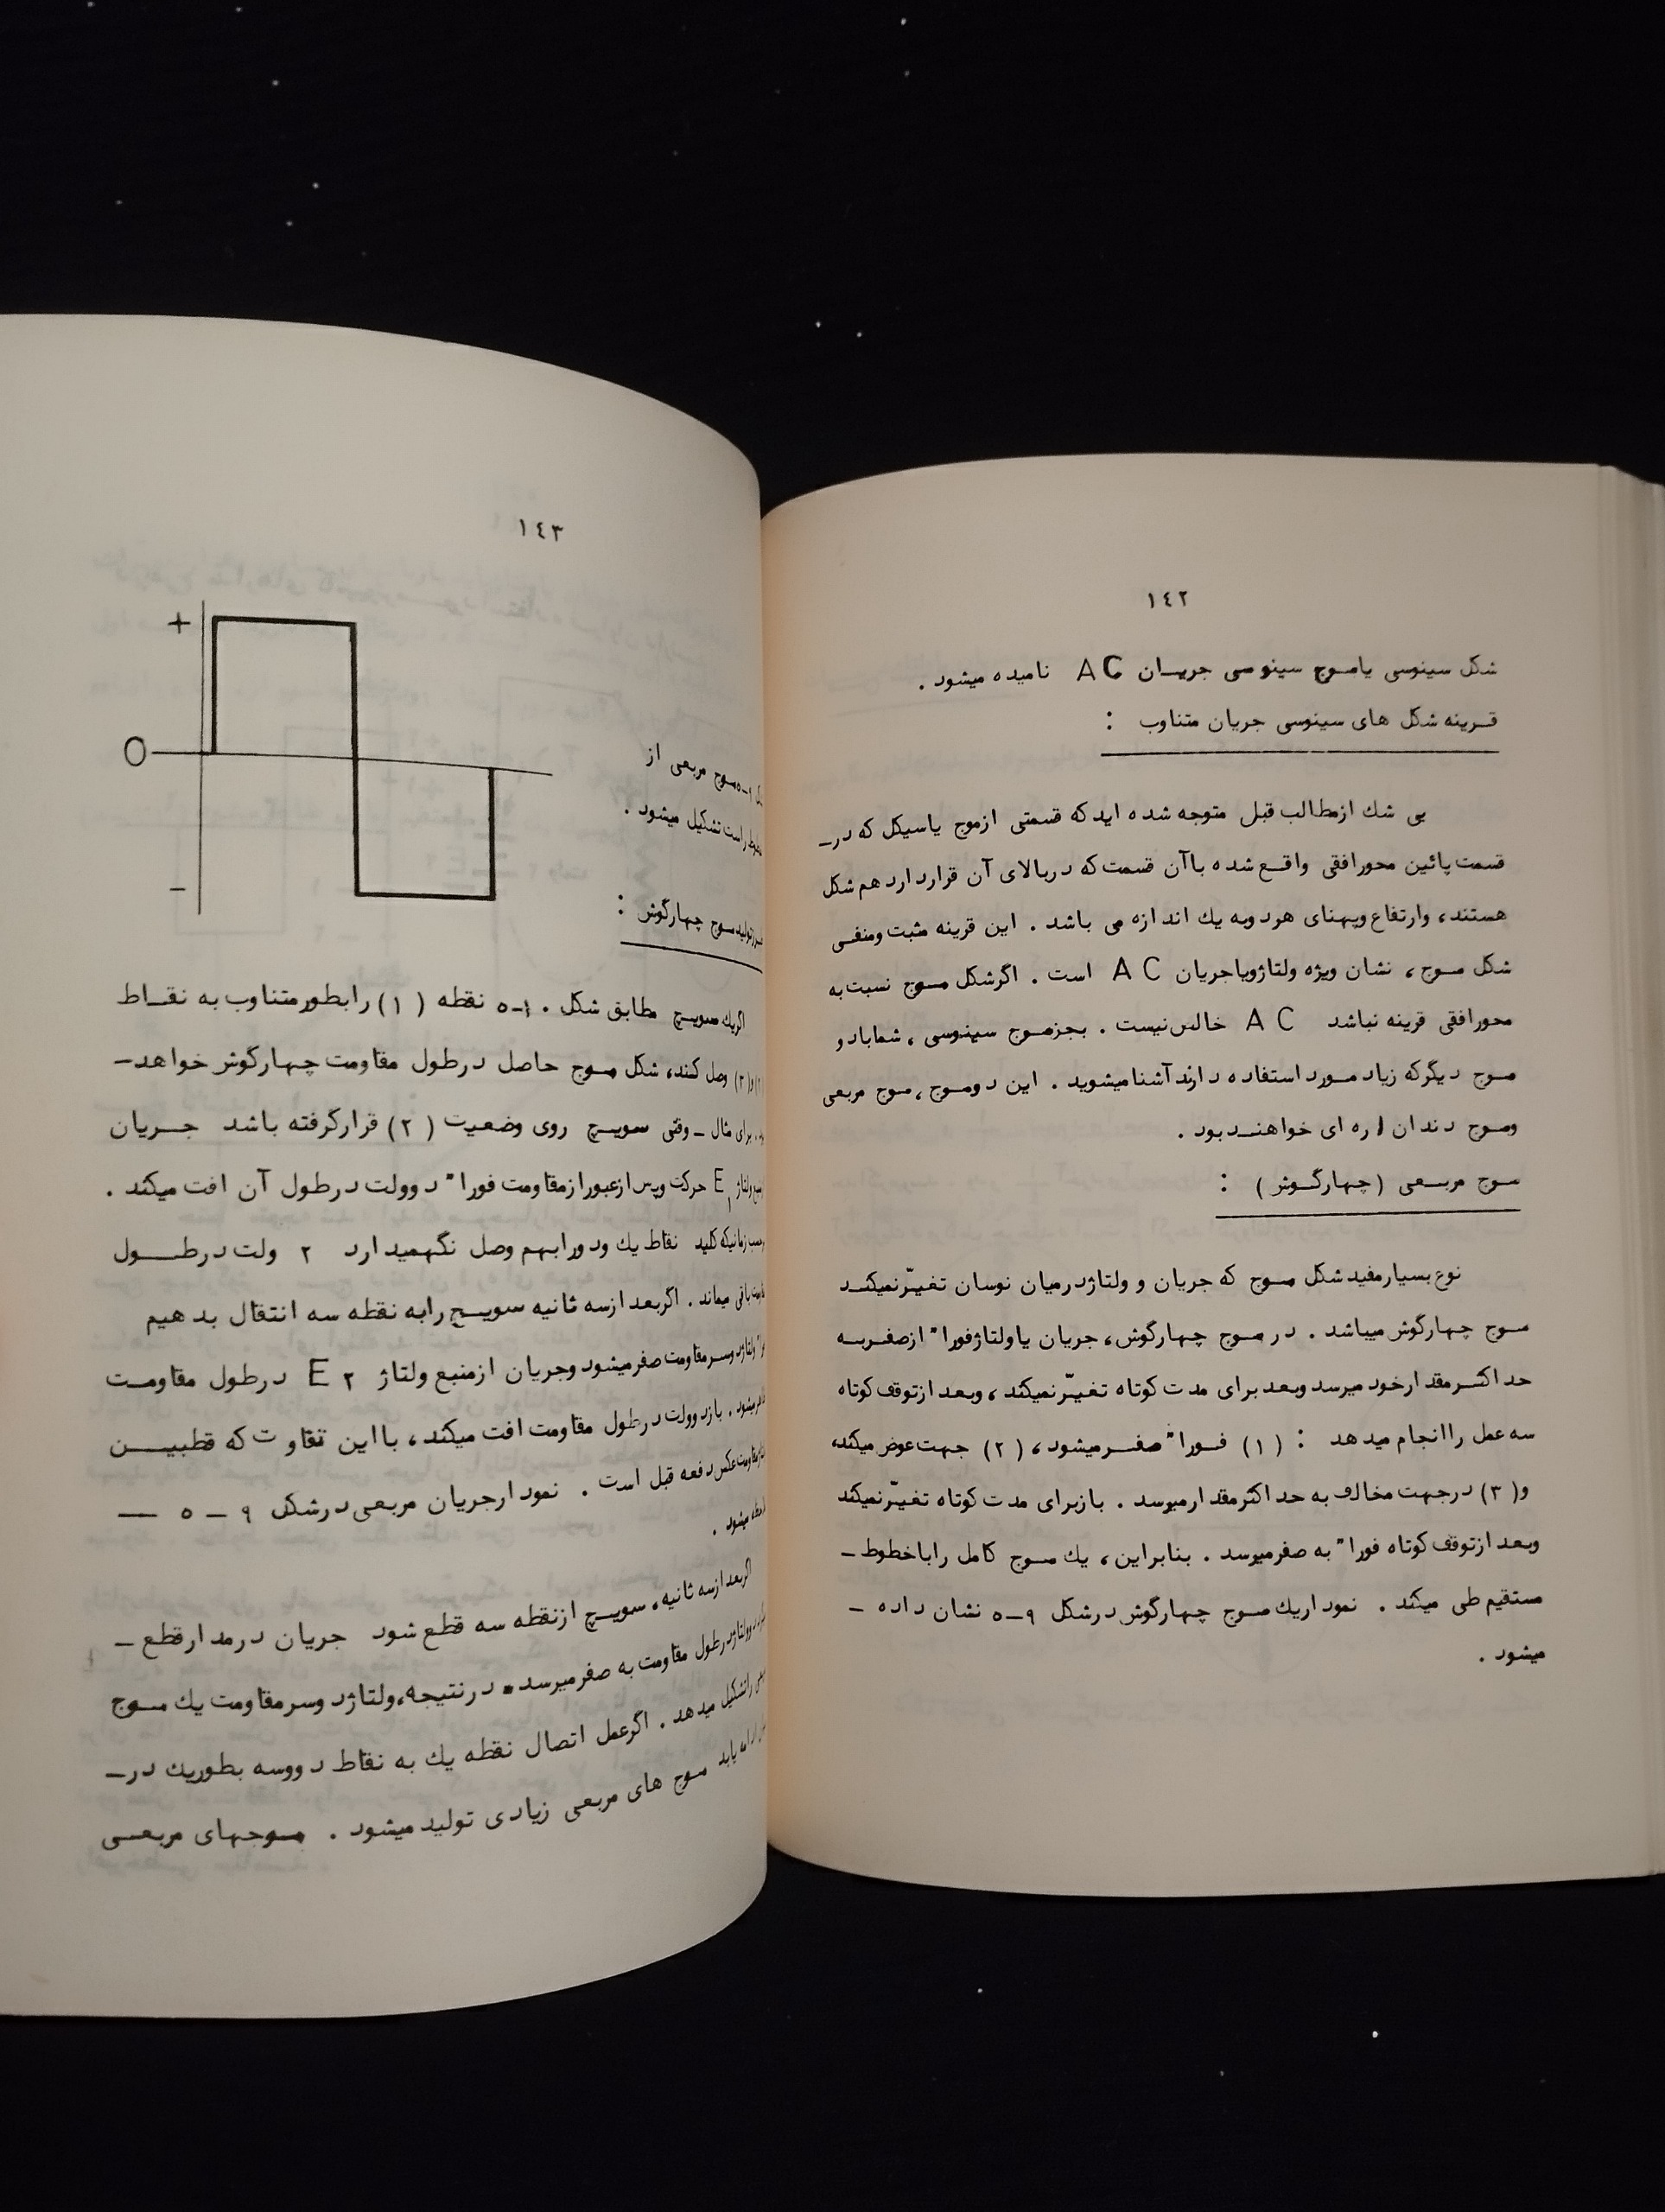 ١٤٢
شکل سینوسی یا موج سینوسی جریان AC نامیده میشود .
قرینه شکل های سینوسی جریان متناوب :
بی شك از مطالب قبل متوجه شده اید که قسمتی از موج یا سیکل که در—
قسمت پائین محور افقی واقع شده با آن قسمت که در بالای آن قرار دارد هم شکل
هستند، و ارتفاع و پهنای هر دو به یك اندازه می باشد . این قرینه مثبت و منفی
شکل موج، نشان ویژه ولتاژ و یا جریان AC است . اگر شکل موج نسبت به
محور افقی قرینه نباشد AC خالص نیست . بجز موج سینوسی ، شما با دو
موج دیگر که زیاد مورد استفاده دارند آشنا میشوید . این دو موج ، موج مربعی
و موج دندان اره ای خواهند بود .
موج مربعی (چهارگوش) :
نوع بسیار مفید شکل موج که جریان و ولتاژ در میان نوسان تغیّر نمیکند
موج چهارگوش میباشد . در موج چهارگوش، جریان یا ولتاژ فورا" از صفر به
حد اکثر مقدار خود میرسد و بعد برای مدت کوتاه تغیّر نمیکند ، و بعد از توقف کوتاه
سه عمل را انجام میدهد : (١) فورا" صفر میشود ، (٢) جهت عوض میکند،
و (٣) در جهت مخالف به حد اکثر مقدار میرسد . باز برای مدت کوتاه تغیّر نمیکند
و بعد از توقف کوتاه فورا" به صفر میرسد . بنابراین ، یك موج کامل را با خطوط —
مستقیم طی میکند . نمودار یك موج چهارگوش در شکل ٩—٥ نشان داده —
میشود .
١٤٣
+
O
—
٩—٥ موج مربعی از
راست تشکیل میشود .
تولید موج چهارگوش :
اگر یك سویچ مطابق شکل ١٠—٥ نقطه (١) را بطور متناوب به نقاط
و (٣) وصل کند، شکل موج حاصل در طول مقاومت چهارگوش خواهد—
برای مثال — وقتی سویچ روی وضعیت (٢) قرار گرفته باشد جریان
ولتاژ E١ حرکت و پس از عبور از مقاومت فورا" دو ولت در طول آن افت میکند .
زمانیکه کلید نقاط یك و دو را بهم وصل نگهمیدارد ٢ ولت در طول
باقی میماند . اگر بعد از سه ثانیه سویچ را به نقطه سه انتقال بدهیم
ولتاژ دو سر مقاومت صفر میشود و جریان از منبع ولتاژ E ٢ در طول مقاومت
میشود . باز دو ولت در طول مقاومت افت میکند ، با این تفاوت که قطبین
مقاومت عکس دفعه قبل است . نمودار جریان مربعی در شکل ٩ — ٥ —
میشود .
اگر بعد از سه ثانیه، سویچ از نقطه سه قطع شود جریان در مدار قطع —
و ولتاژ در طول مقاومت به صفر میرسد . در نتیجه، ولتاژ دو سر مقاومت یك موج
را تشکیل میدهد . اگر عمل اتصال نقطه یك به نقاط دو و سه بطور یك در—
ادامه یابد موج های مربعی زیادی تولید میشود . موجهای مربعی